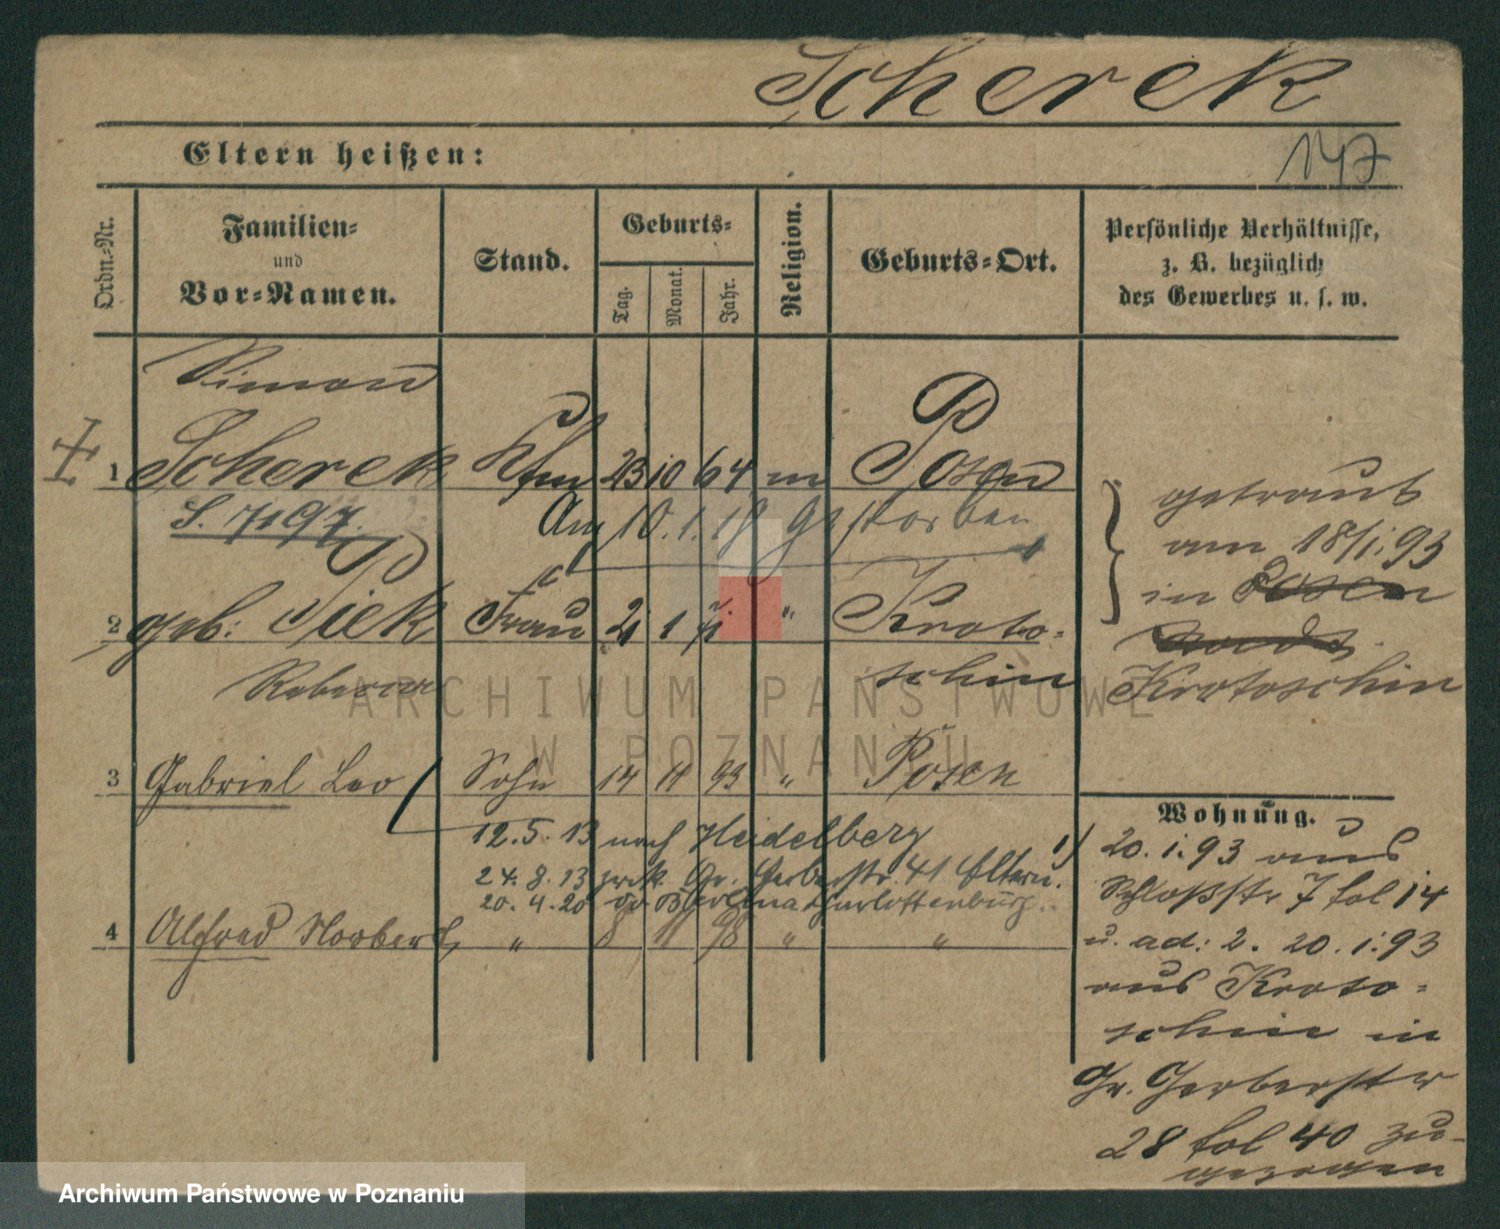 Scherek
Eltern heißen:
147
Ordn.-Nr.
Familien-
und
Vor-Namen.
Stand.
Geburts-
Tag.
Monat.
Jahr.
Religion.
Geburts-Ort.
Persönliche Verhältnisse,
z. B. bezüglich
des Gewerbes u. s. w.
Simon
1 Scherek Kfm 23 10 64 m Posen
S. 7197.
Am 10. 1. 18 gestorben
2 geb: Piek Frau 1 71 " Kroto-
schin
Rebecca
getraut
am 18/1. 93
in Posen
Krotoschin
3 Gabriel Leo Sohn 14 11 93 " Posen
12. 5. 13 nach Heidelberg
24. 8. 13 zrck. Gr. Gerberstr. 41 Eltern.
20. 4. 20 Charlottenburg.
4 Alfred Norbert, " 8 11 98 " "
Wohnung.
1) 20. 1. 93 aus
Schloßstr 7 fol 14
u. ad: 2. 20. 1. 93
aus Kroto-
schin in
Gr. Gerberstr
28 fol 40 zu-
gezogen
ARCHIWUM PAŃSTWOWE
W POZNANIU
Archiwum Państwowe w Poznaniu